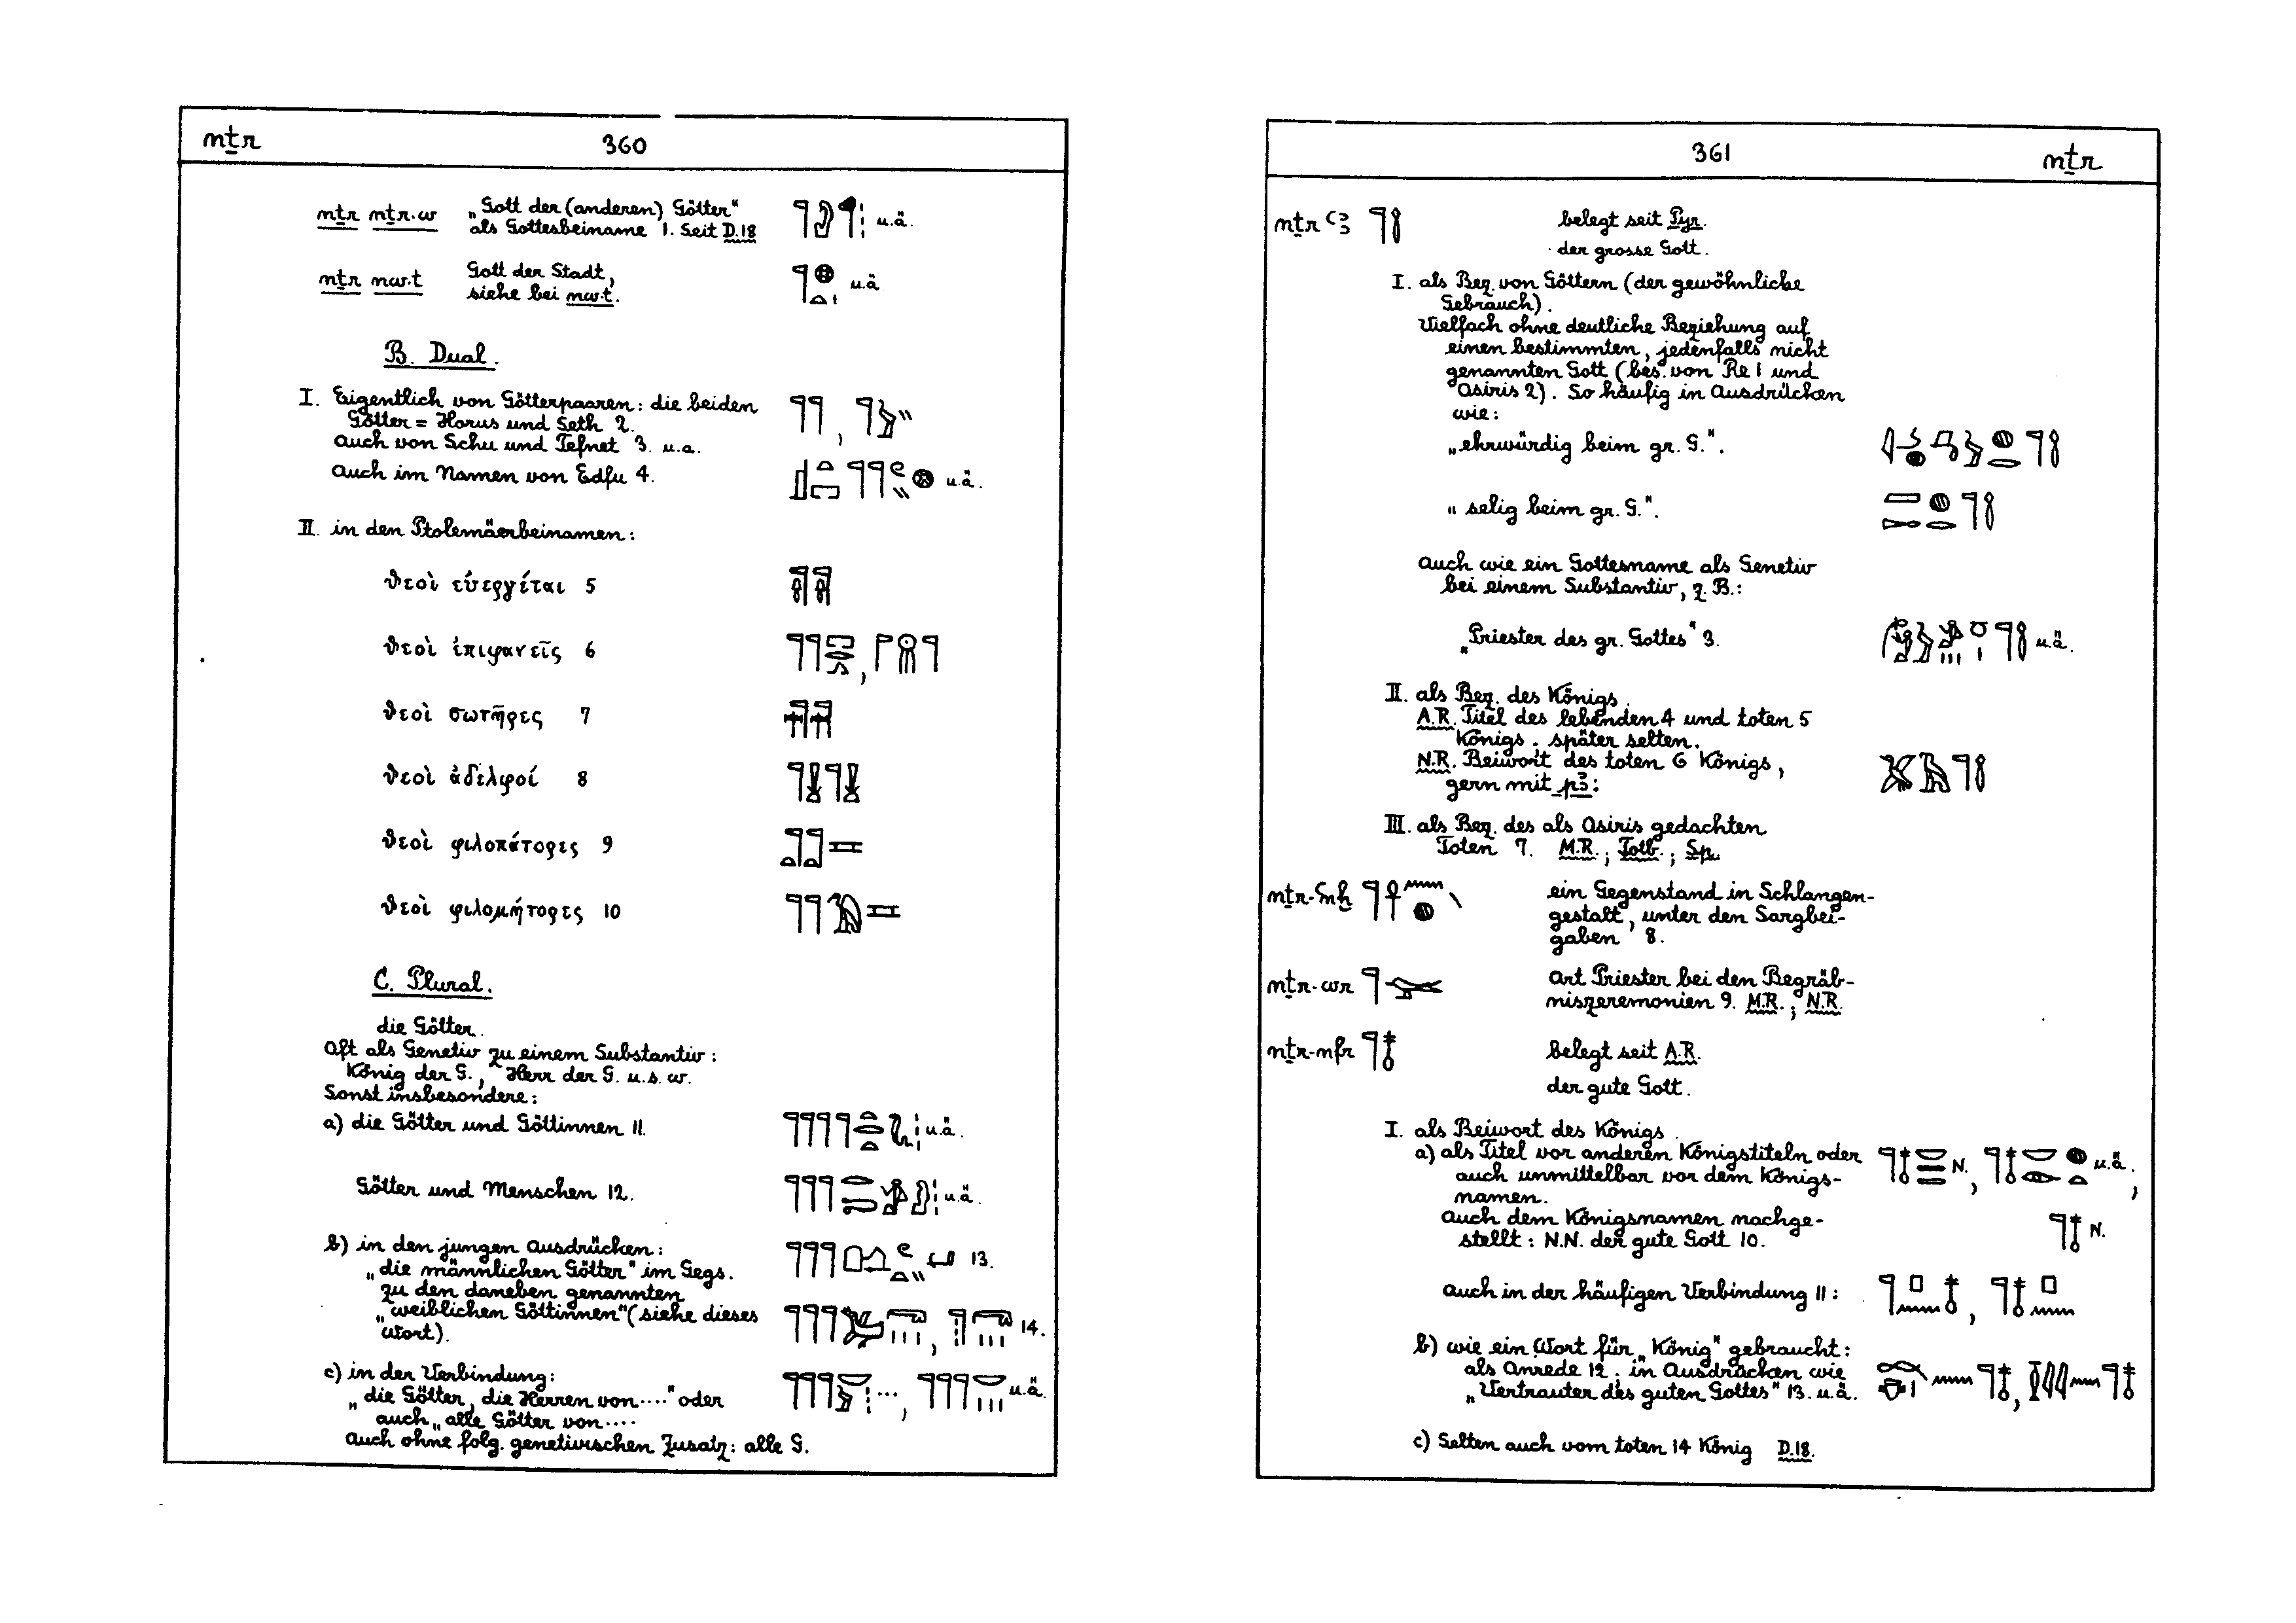 nṯr 360
nṯr nṯr·w „Gott der (anderen) Götter“
als Gottesbeiname 1. Seit D.18 u.ä.
nṯr nw·t Gott der Stadt,
siehe bei nw·t. u.ä
B. Dual.
I. Eigentlich von Götterpaaren: die beiden
Götter = Horus und Seth 2.
auch von Schu und Tefnet 3. u.a.
auch im Namen von Edfu 4. u.ä.
II. in den Ptolemäerbeinamen:
ϑεοὶ εὐεργέται 5
ϑεοὶ ἐπιφανεῖς 6
ϑεοὶ σωτῆρες 7
ϑεοὶ ἀδελφοί 8
ϑεοὶ φιλοπάτορες 9
ϑεοὶ φιλομήτορες 10
C. Plural.
die Götter.
Oft als Genetiv zu einem Substantiv:
König der G., Herr der G. u.s.w.
Sonst insbesondere:
a) die Götter und Göttinnen 11. u.ä.
Götter und Menschen 12. u.ä.
b) in den jungen Ausdrücken: 13.
„die männlichen Götter“ im Gegs.
zu den daneben genannten
„weiblichen Göttinnen“ (siehe dieses 14.
Wort).
c) in der Verbindung:
„die Götter, die Herren von····“ oder ..., u.ä.
auch „alle Götter von····
Auch ohne folg. genetivischen Zusatz: alle G.
361 nṯr
nṯr ꜥꜣ belegt seit Pyr.
der grosse Gott.
I. als Bez. von Göttern (der gewöhnliche
Gebrauch).
Vielfach ohne deutliche Beziehung auf
einen bestimmten, jedenfalls nicht
genannten Gott (bes. von Re 1 und
Osiris 2). So häufig in Ausdrücken
wie:
„ehrwürdig beim gr. G.“.
„selig beim gr. G.“.
Auch wie ein Gottesname als Genetiv
bei einem Substantiv, z.B.:
„Priester des gr. Gottes“ 3. u.ä.
II. als Bez. des Königs.
A.R. Titel des lebenden 4 und toten 5
Königs; später selten.
N.R. Beiwort des toten 6 Königs,
gern mit pꜣ:
III. als Bez. des als Osiris gedachten
Toten 7. M.R.; Totb.; Sp.
nṯr-ꜥnḫ ein Gegenstand in Schlangen-
gestalt, unter den Sargbei-
gaben 8.
nṯr-wr Art Priester bei den Begräb-
niszeremonien 9. M.R.; N.R.
nṯr-nfr belegt seit A.R.
der gute Gott.
I. als Beiwort des Königs.
a) als Titel vor anderen Königstiteln oder N., u.ä.,
auch unmittelbar vor dem Königs-
namen.
Auch dem Königsnamen nachge-
stellt: N.N. der gute Gott 10. N.
auch in der häufigen Verbindung 11:
b) wie ein Wort für „König“ gebraucht:
als Anrede 12; in Ausdrücken wie
„Vertrauter des guten Gottes“ 13. u.ä.
c) Selten auch vom toten 14 König D.18.